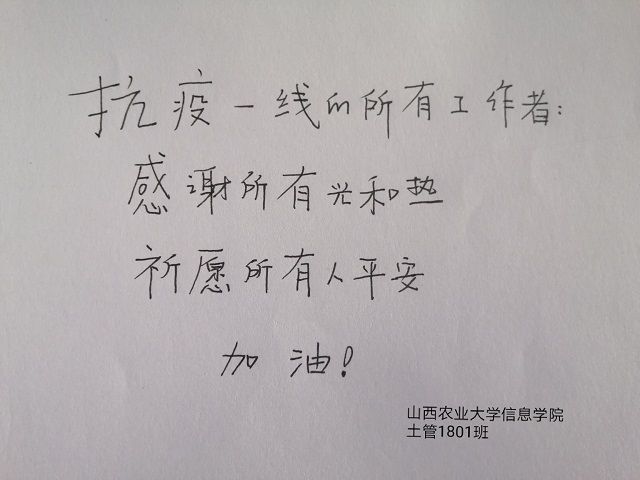 抗疫一线的所有工作者:
感谢所有光和热
祈愿所有人平安
加油!
山西农业大学信息学院
土管1801班